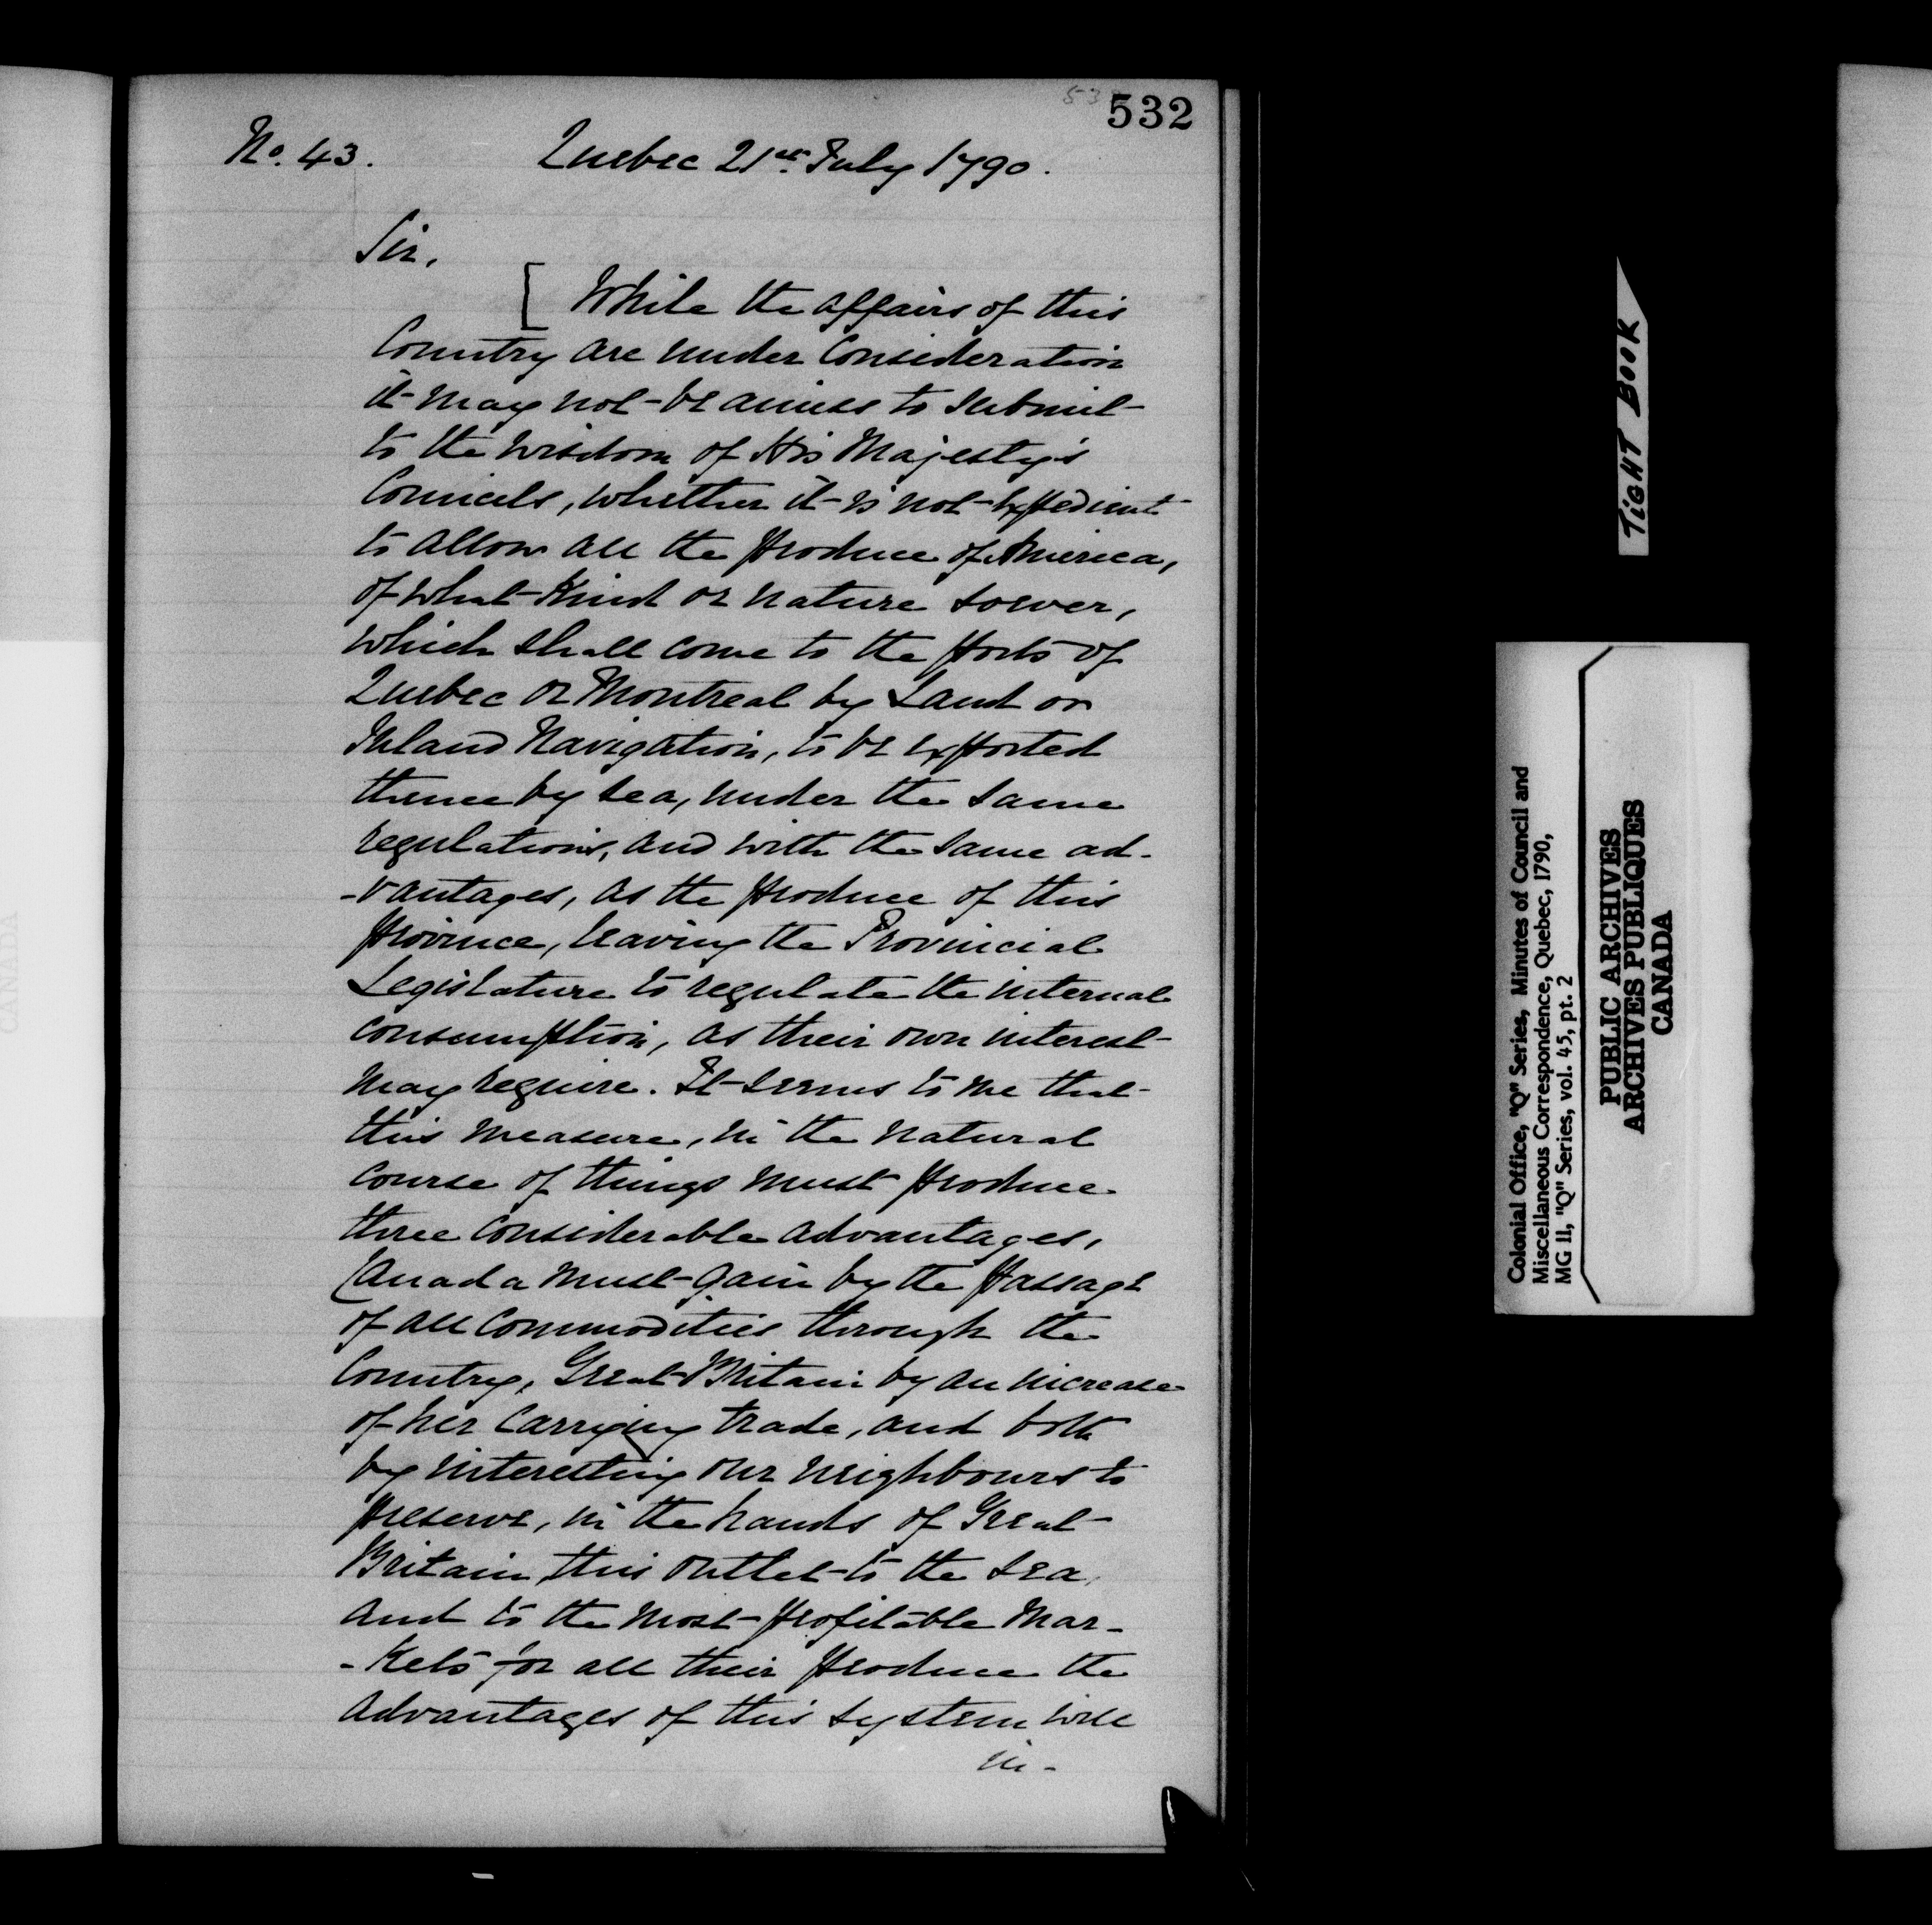 532
No. 43. Quebec 21st July 1790.
Sir,
[ While the affairs of this
Country are under Consideration
it may not be amiss to submit
to the wisdom of His Majesty's
Councils, whether it is not expedient
to allow all the produce of America,
of what kind or nature soever,
which shall come to the ports of
Quebec or Montreal by Land or
Inland Navigation, to be exported
thence by sea, under the same
regulations, and with the same ad-
-vantages, as the produce of this
province, leaving the Provincial
Legislature to regulate the internal
consumption, as their own interest
may require. It seems to me that
this measure, in the natural
course of things must produce
three considerable advantages,
Canada must gain by the passage
of all commodities through the
Country, Great Britain by an increase
of her carrying trade, and both
by interesting our neighbours to
preserve, in the hands of Great
Britain, this outlet to the sea,
and to the most profitable Mar-
-kets for all their produce the
advantages of this system will
in-
TIGHT BOOK
Colonial Office, "Q" Series, Minutes of Council and
Miscellaneous Correspondence, Quebec, 1790,
MG 11, "Q" Series, vol. 45, pt. 2
PUBLIC ARCHIVES
ARCHIVES PUBLIQUES
CANADA
CANADA